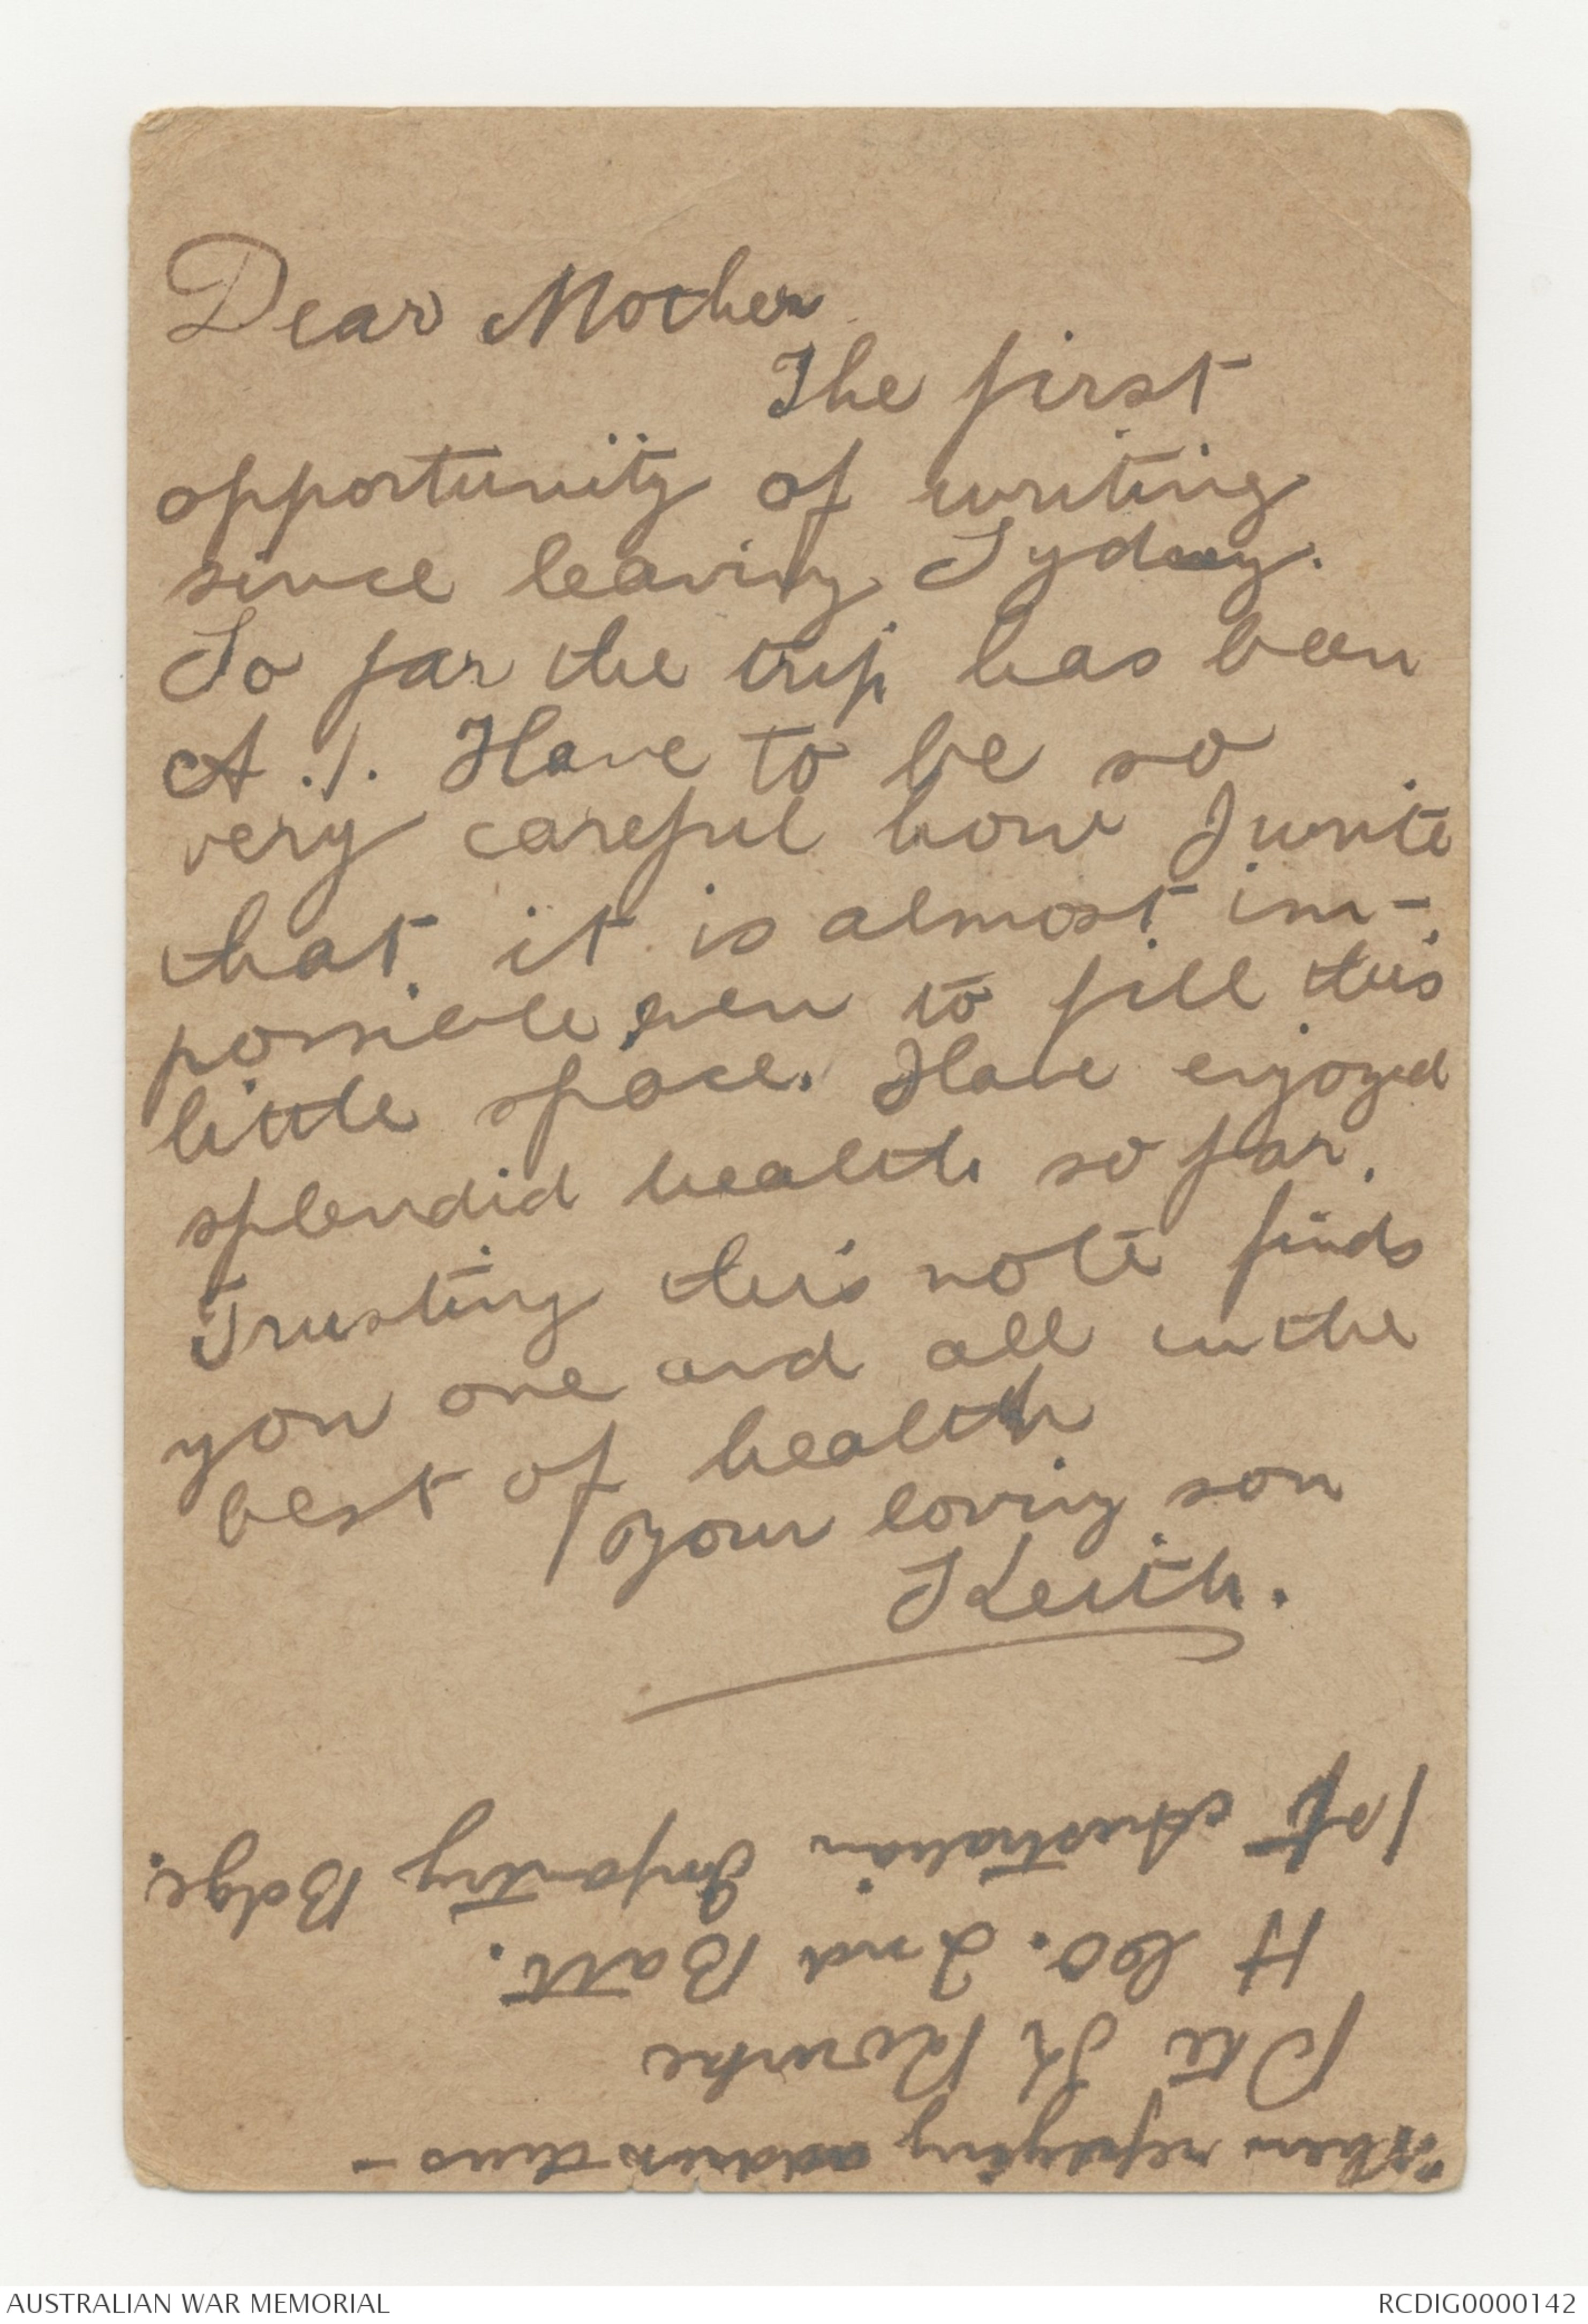 Dear Mother
The first
opportunity of writing
since leaving Sydney.
So far the trip has been
A.1. Have to be so
very careful how I write
that it is almost im-
possible, even to fill this
little space. Have enjoyed
splendid health so far.
Trusting this note finds
you one and all in the
best of health
Your loving son
Keith.
When replying address thus -
Pte K
H Co. 2nd Batt.
1st Australian Infantry Bdge.
AUSTRALIAN WAR MEMORIAL
RCDIG0000142